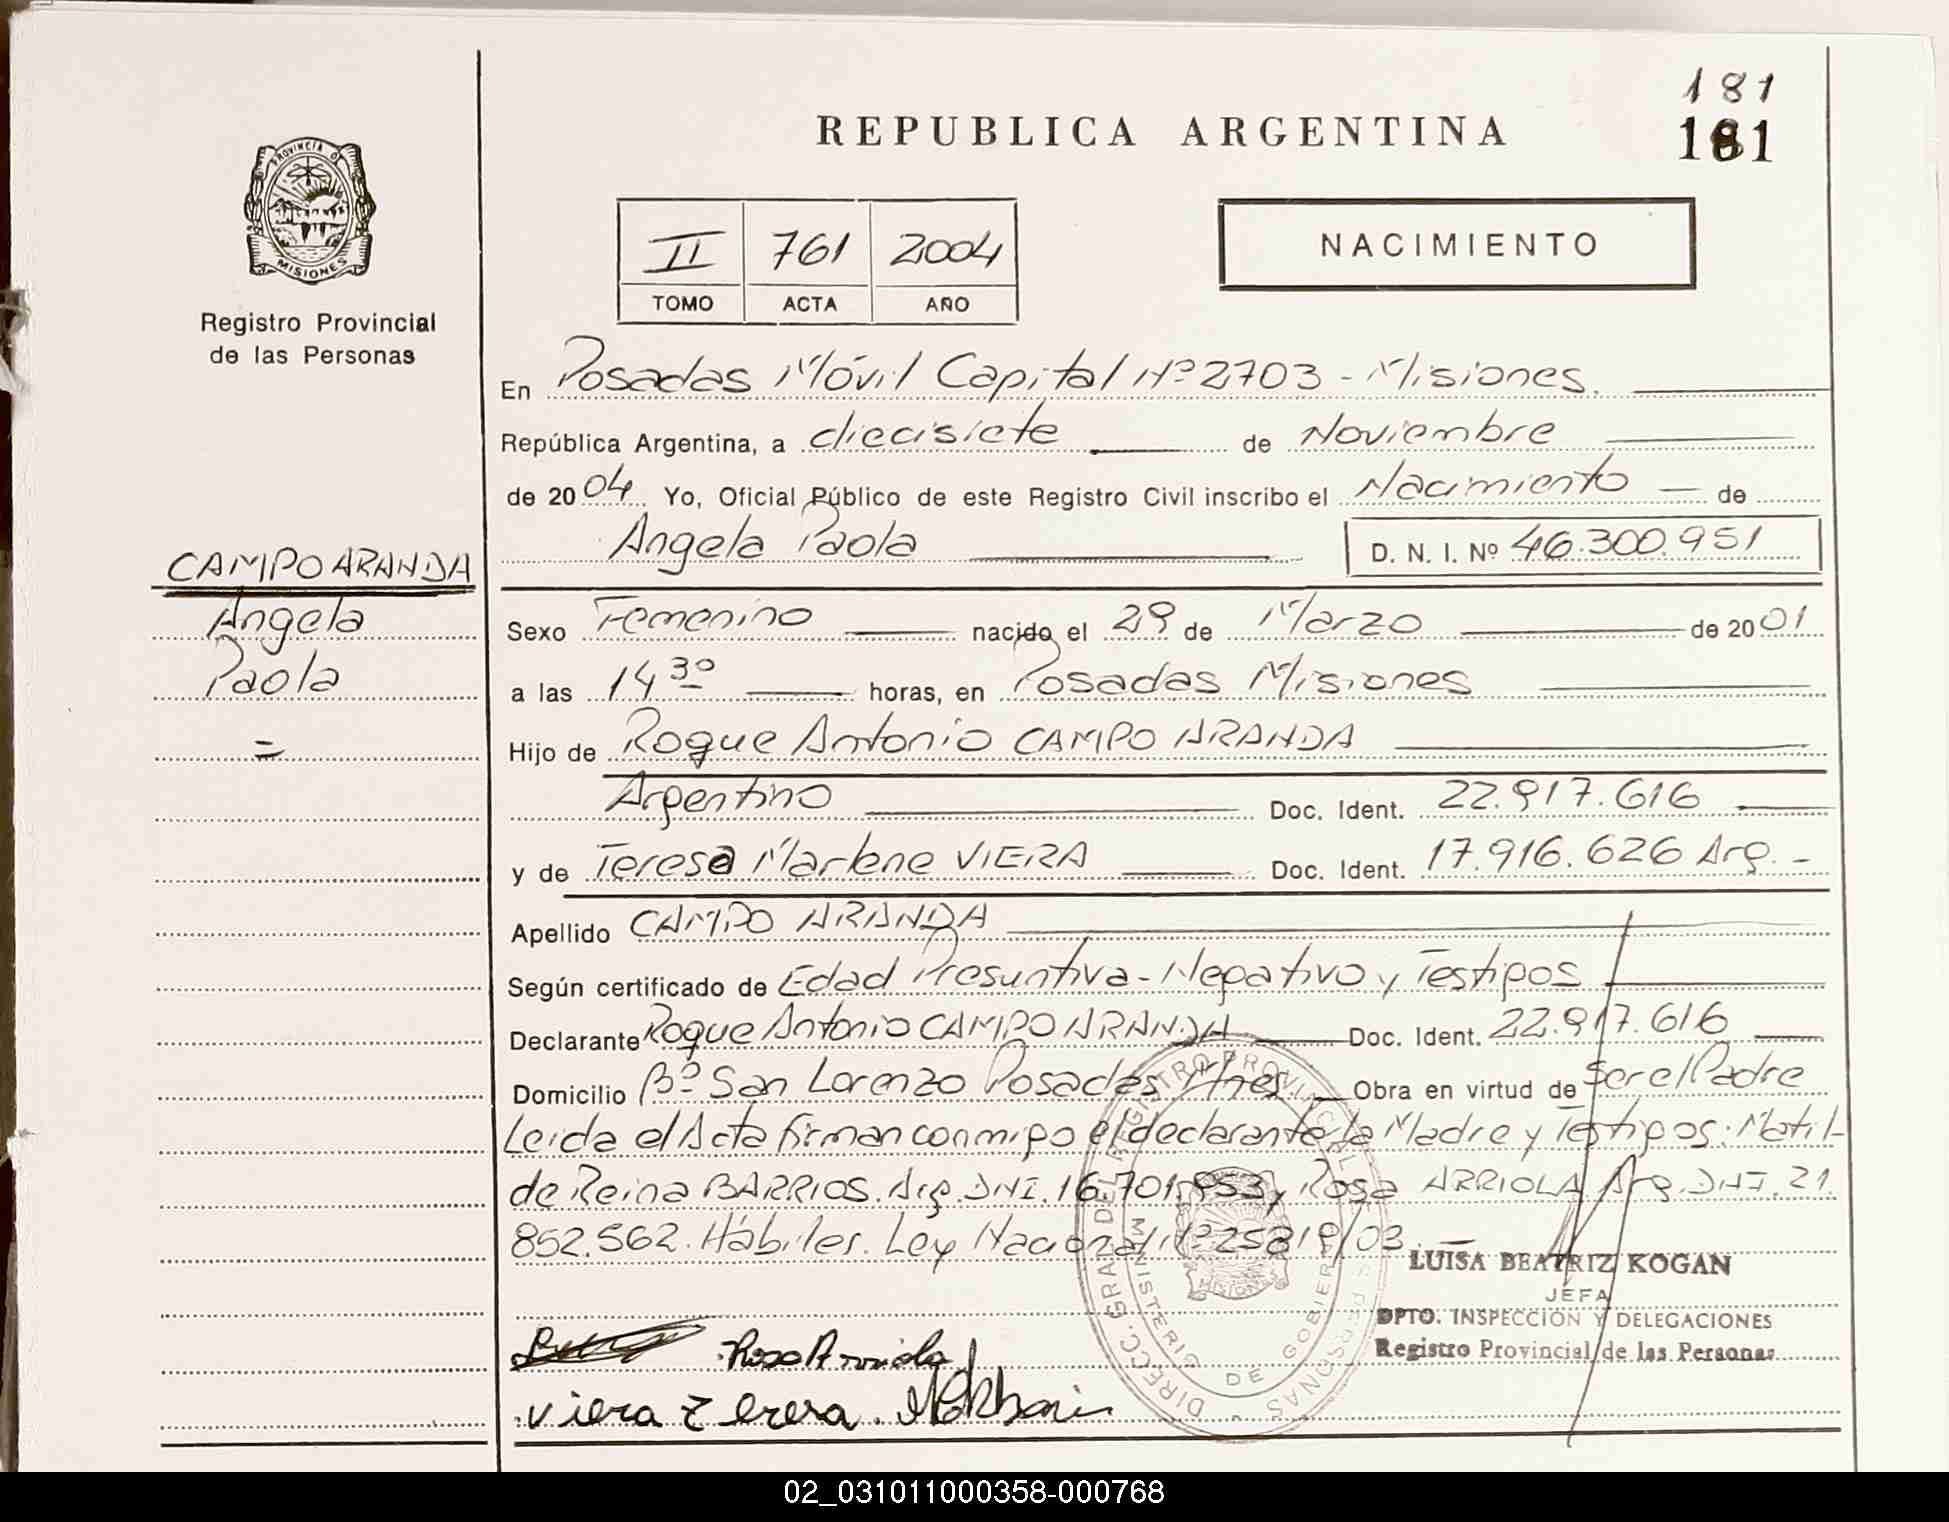 181
REPUBLICA ARGENTINA
181
PROVINCIA D
MISIONES
Registro Provincial
de las Personas
II 761 2004
TOMO ACTA AÑO
NACIMIENTO
En Posadas Móvil Capital Nº 2703 - Misiones.
República Argentina, a diecisiete de Noviembre
de 2004 Yo, Oficial Público de este Registro Civil inscribo el Nacimiento de
Angela Paola D. N. I. Nº 46.300.951
CAMPO ARANDA
Angela
Paola
=
Sexo Femenino nacido el 29 de Marzo de 2001
a las 14 30 horas, en Posadas Misiones
Hijo de Roque Antonio CAMPO ARANDA
Argentino Doc. Ident. 22.917.616
y de Teresa Marlene VIERA Doc. Ident. 17.916.626 Arg. -
Apellido CAMPO ARANDA
Según certificado de Edad Presuntiva - Negativo y Testigos
Declarante Roque Antonio CAMPO ARANDA Doc. Ident. 22.917.616
Domicilio Bº San Lorenzo Posadas Mnes Obra en virtud de Ser el Padre
Leida el Acta firman conmigo el declarante la Madre y Testigos: Matil-
de Reina BARRIOS. Arg. DNI. 16.701.853 y Rosa ARRIOLA Arg. DNI. 21.
852.562. Hábiles. Ley Nacional Nº 25819/03.
LUISA BEATRIZ KOGAN
JEFA
DPTO. INSPECCIÓN Y DELEGACIONES
Registro Provincial de las Personas
DIRECC. GRAL DEL REGISTRO PROVINCIAL DE LAS PERSONAS
MINISTERIO DE GOBIERNO
MISIONES
Rosa Arriola
Viera Teresa.
02_031011000358-000768